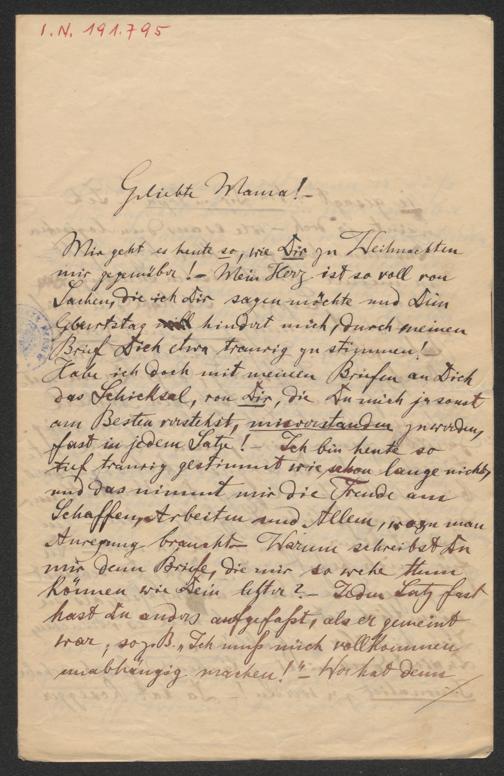 I.N. 191.795
Geliebte Mama! –
Mir geht es heute so, wie Dir zu Weihnachten
mir gegenüber! – Mein Herz ist so voll von
Sachen, die ich Dir sagen möchte und Dein
Geburtstag hindert mich, durch meinen
Brief Dich etwa traurig zu stimmen!
Habe ich doch mit meinen Briefen an Dich
das Schicksal, von Dir, die Du mich ja sonst
am Besten verstehst, missverstanden zu werden,
fast in jedem Satze! – Ich bin heute so
tief traurig gestimmt wie schon lange nicht,
und das nimmt mir die Freude am
Schaffen, Arbeiten und Allem, wozu man
Anregung braucht – Warum schreibst Du
mir denn Briefe, die mir so wehe thun
können wie Dein letzter? – Jeden Satz fast
hast Du anders aufgefasst, als er gemeint
war, so z.B. „Ich muss mich vollkommen
unabhängig machen!" – Wer hat denn